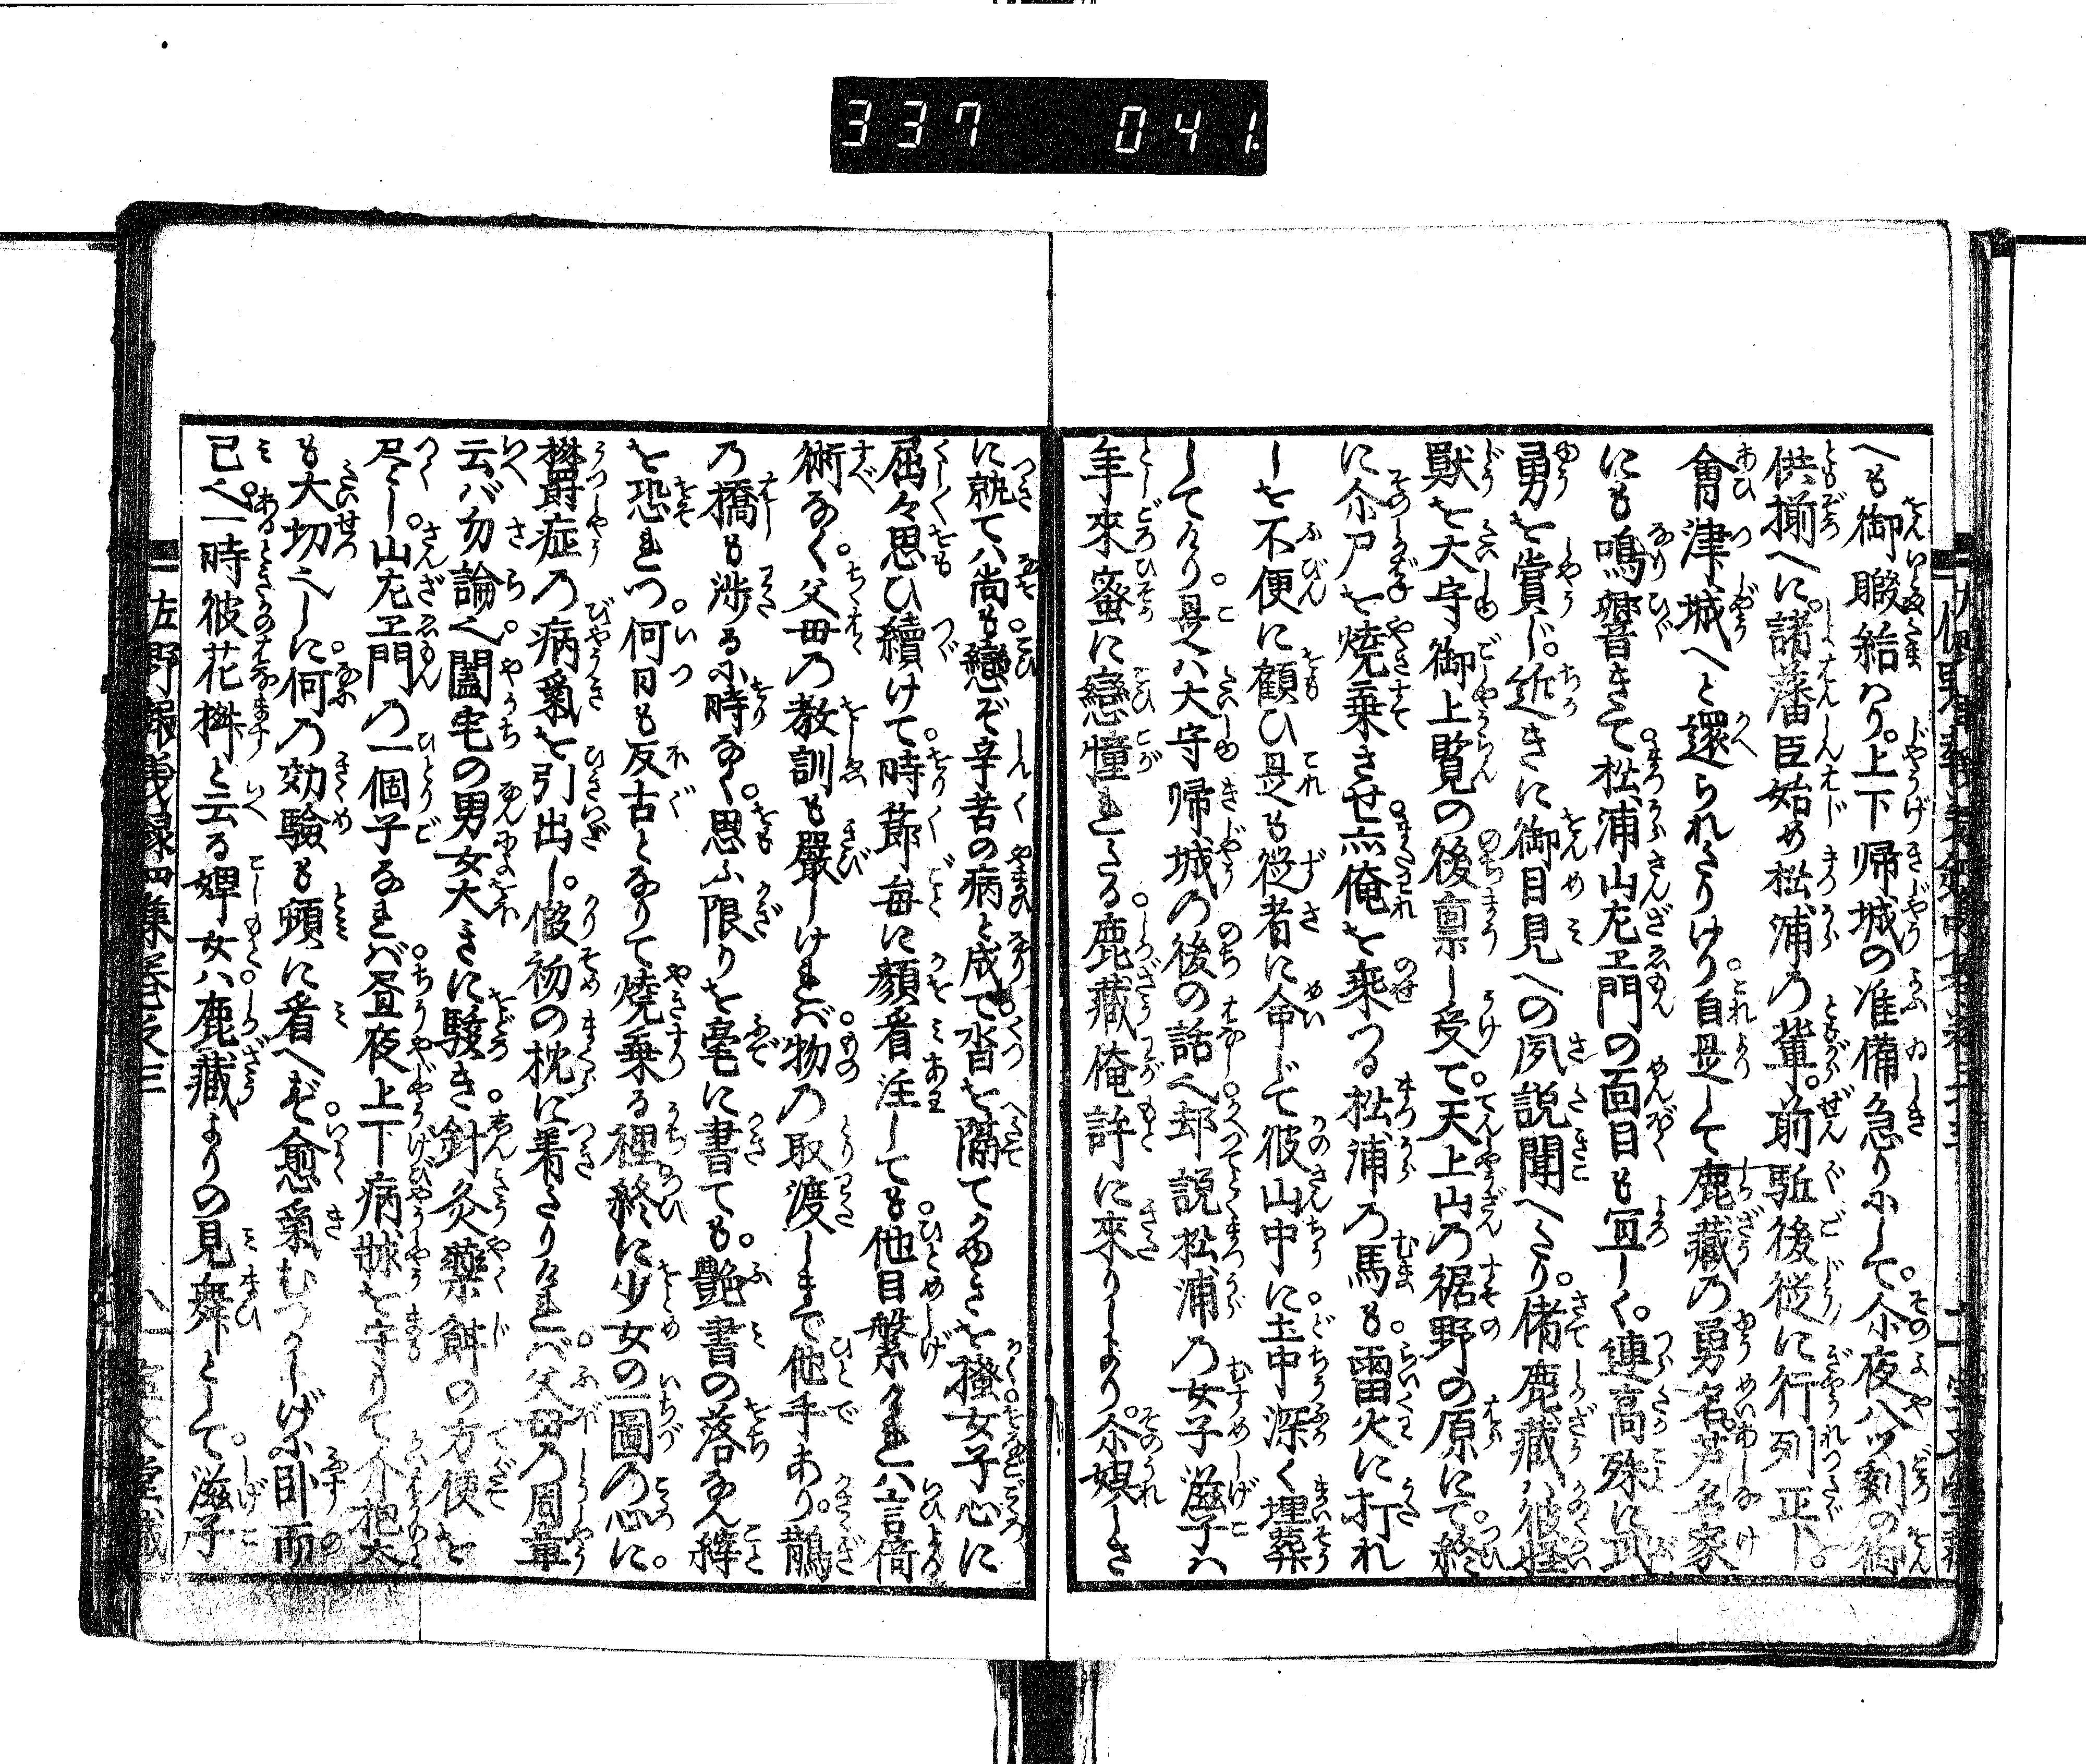 337 041.
へも御暇給はり。上下帰城の准備急りふして。尒夜八ツ刻の御
供揃へに。諸藩臣始め松浦乃輩。前駈後従に行列平。
會津城へと還られさりけり。自是して鹿藏乃勇名。芦名家
にも鳴響きて。松浦山左エ門の面目も冝しく。連高殊に武
勇を賞じ。近きに御目見への夙説聞へたり。偖鹿藏ハ彼怪
獸を大守御上覧の後禀し受て。天上山乃裾野の原にて。終
に尒尸を焼棄させ。俺を乗つる松浦乃馬も。雷火に打れ
しを不便に顧ひ。是も従者に命じて。彼山中に。土中深く埋葬
してけり。是ハ大守帰城の後の話へ。却説松浦乃女子滋子ハ
年来蜜に戀憧れたる。鹿藏俺許に來りしより。尒娯しさ
に執てハ尚も戀ぞ辛苦の病と成て。沓を隔てかゆきを搔女子心に
屈々思ひ續けて。時節毎に顔看注しても。他目繋けれハ言倚
術なく。父母の教訓も嚴しけれバ。物の取渡しまで他手あり。鵲
乃橋も渉るふ時なく。思ふ限りを毫に書ても。艶書の落なん縡
を恐れつ。何日も反古となりて焼棄る裡。終に少女の一圖の心に。
欝症の病氣を引出し。假初の枕に着たりけれバ。父母の周章
云バ勿論へ。闔宅の男女大きに駭き。針灸藥餌の方便を
尽し。山左エ門の一個子なれバ。昼夜上下病牀を守りて介抱大
も大切へしに。何の効驗も頓に看へず。愈氣むづかしげふ卧而
已へ。一時彼花桝と云る婢女ハ。鹿藏よりの見舞として。滋子
佐野報義録四集卷之三